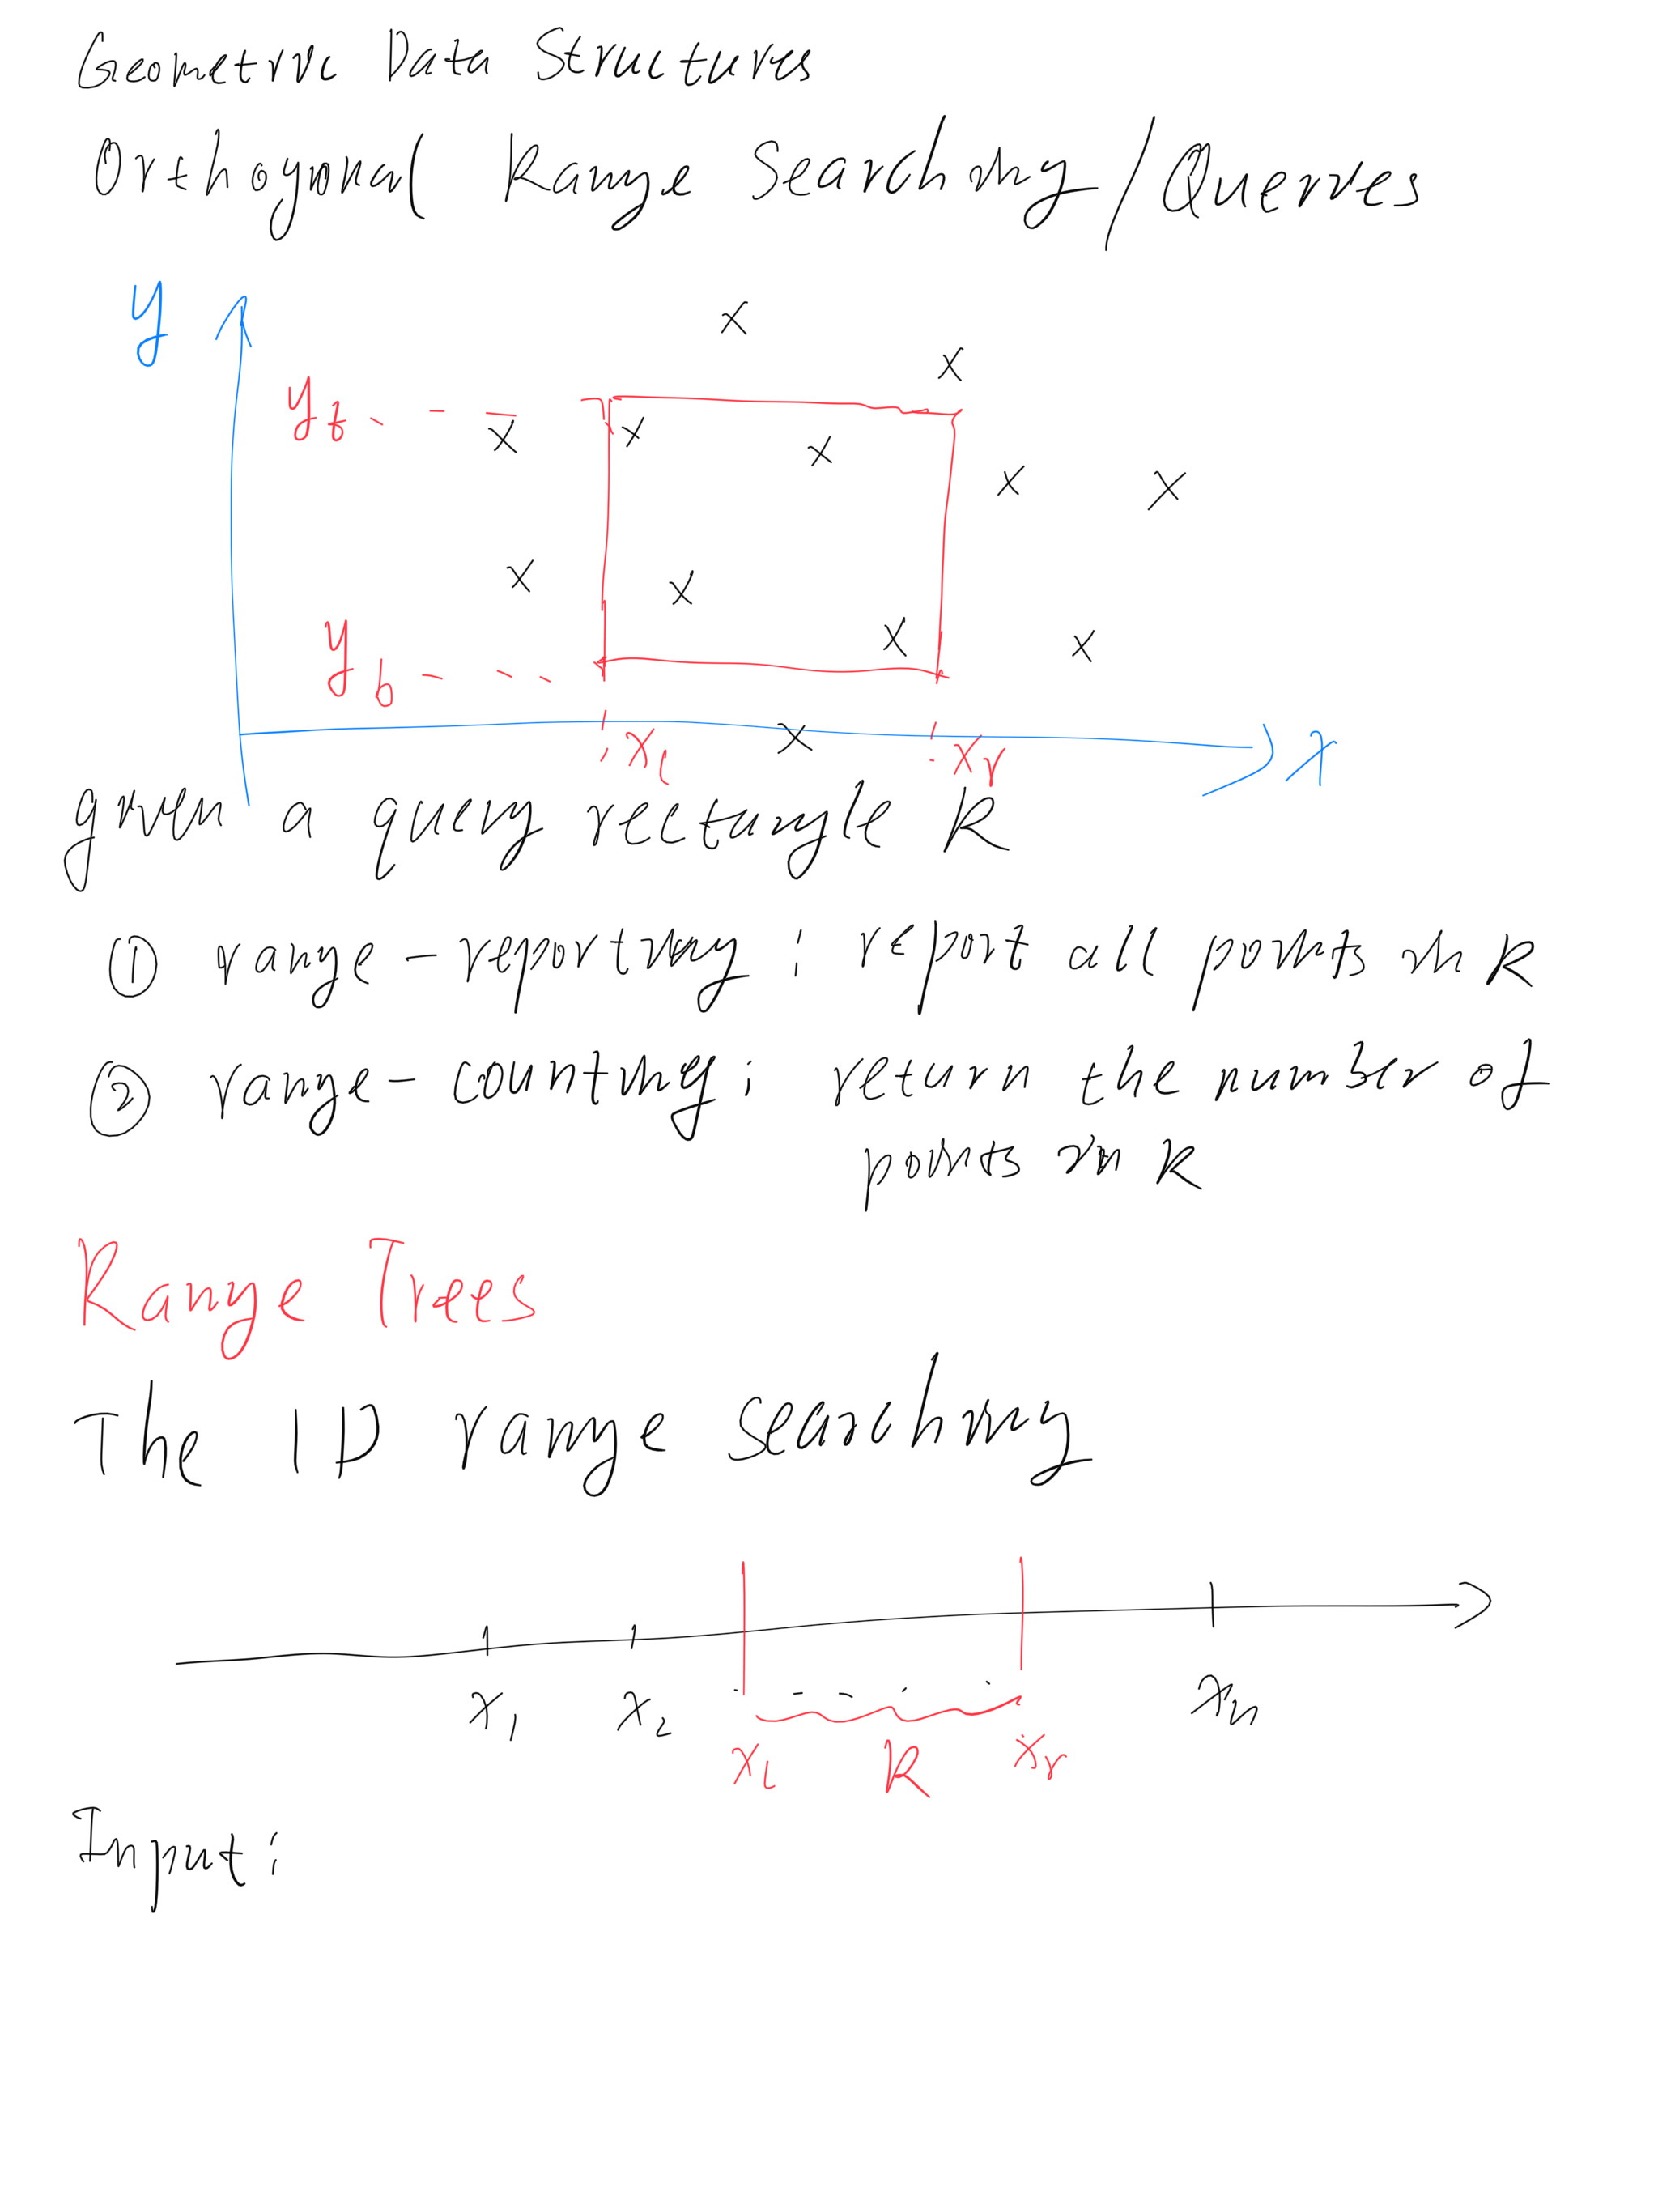 Geometric Data Structures
Orthogonal Range Searching/Queries
y
y_t
y_b
x_l x_r x
given a query rectangle R
① range-reporting: report all points in R
② range-counting: return the number of
points in R
Range Trees
The 1D range searching
x_1 x_2 x_n
x_L R x_r
Input: